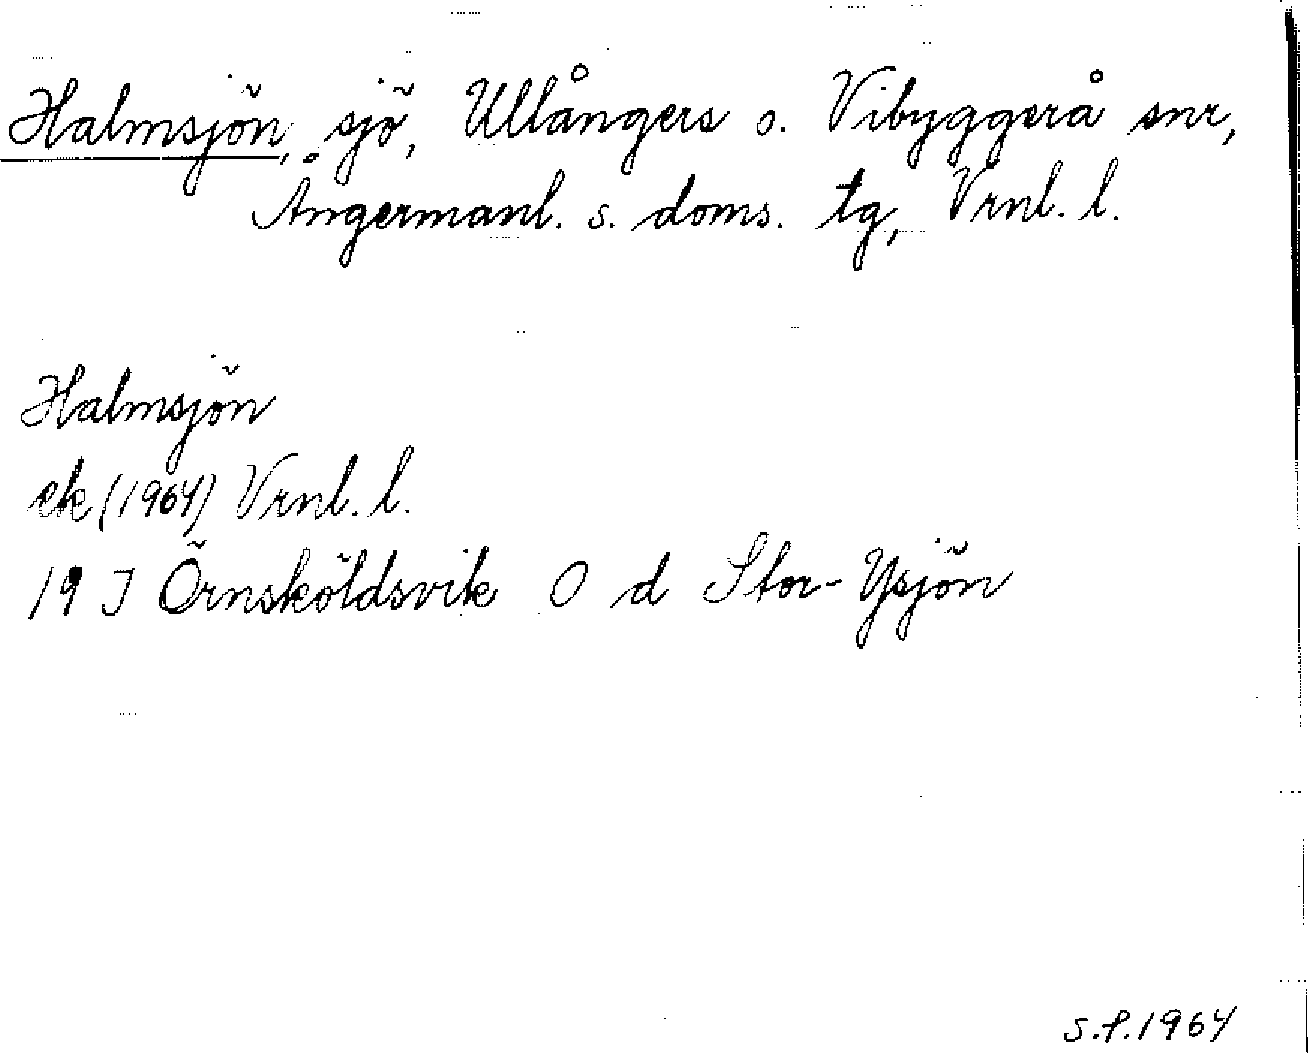 Halmsjön, sjö, Ullångers o. Vibyggerå snr,
Ångermanl. s. doms. tg, Vrnl. l.
Halmsjön
ek (1964) Vrnl. l.
19 J Örnsköldsvik O d Stor-Ysjön
S.f.1964